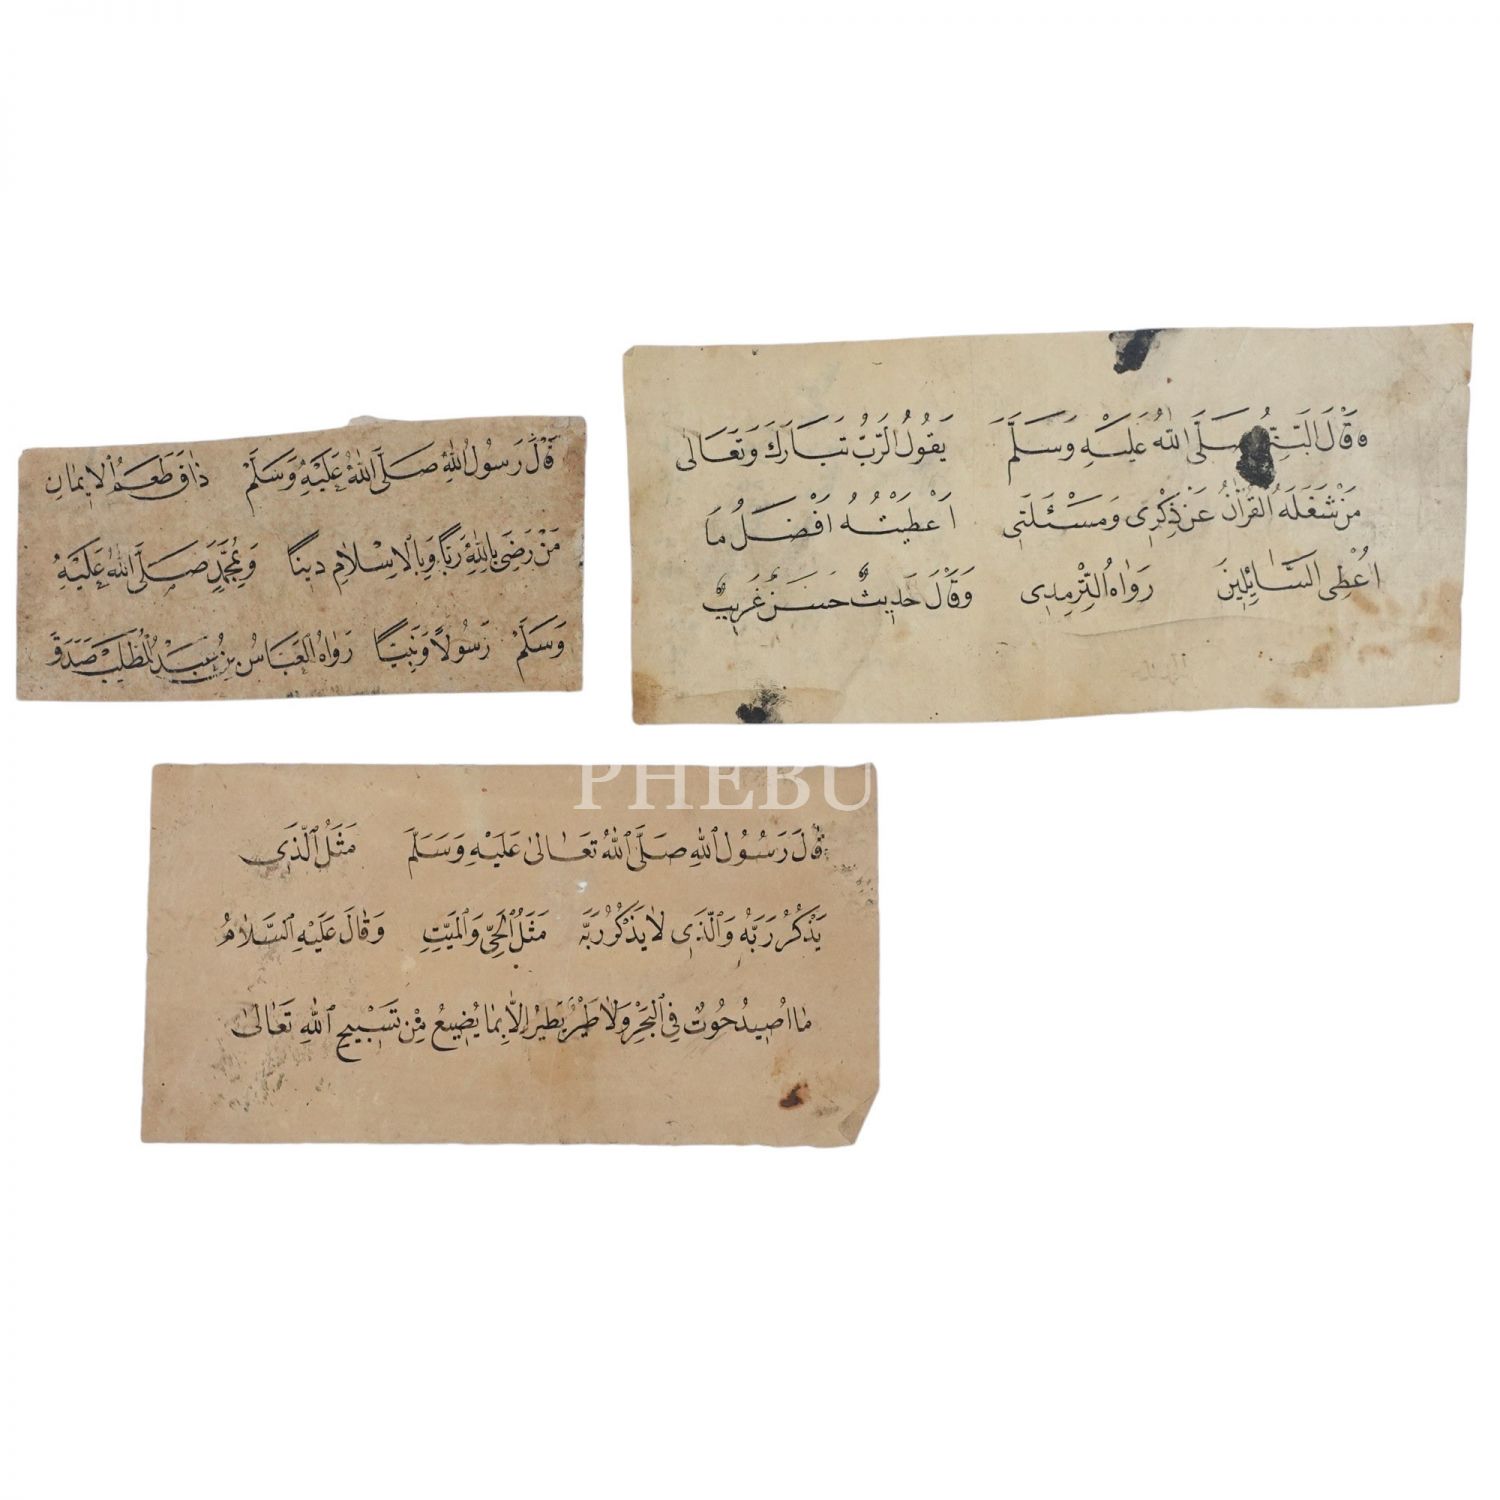 قَالَ رَسُولُ اللّٰهِ صَلَّى اللّٰهُ عَلَيْهِ وَسَلَّمْ ذَاقَ طَعْمَ الْاِيمَانِ
مَنْ رَضِىَ بِاللّٰهِ رَبًّا وَبِالْاِسْلَامِ دِينًا وَبِمُحَمَّدٍ صَلَّى اللّٰهُ عَلَيْهِ
وَسَلَّمْ رَسُولًا وَنَبِيًّا رَوَاهُ الْعَبَّاسُ بْنُ عَبْدِ الْمُطَّلِبْ صَدَقَ
وَقَالَ النَّبِىُّ صَلَّى اللّٰهُ عَلَيْهِ وَسَلَّمَ يَقُولُ الرَّبُّ تَبَارَكَ وَتَعَالٰى
مَنْ شَغَلَهُ الْقُرْاٰنُ عَنْ ذِكْرِى وَمَسْئَلَتِى اَعْطَيْتُهُ اَفْضَلُ مَا
اُعْطِى السَّائِلِينَ رَوَاهُ التِّرْمِذِى وَقَالَ حَدِيثٌ حَسَنٌ غَرِيبٌ
PHEBU
قَالَ رَسُولُ اللّٰهِ صَلَّى اللّٰهُ تَعَالٰى عَلَيْهِ وَسَلَّمَ مَثَلُ الَّذِى
يَذْكُرُ رَبَّهُ وَالَّذِى لَا يَذْكُرُ رَبَّهُ مَثَلُ الْحَىِّ وَالْمَيِّتِ وَقَالَ عَلَيْهِ السَّلَامُ
مَا اُصِيدُ حُوتٌ فِى الْبَحْرِ وَلَا طَيْرٌ يَطِيرُ اِلَّا بِمَا يُضِيعُ مِنْ تَسْبِيحِ اللّٰهِ تَعَالٰى